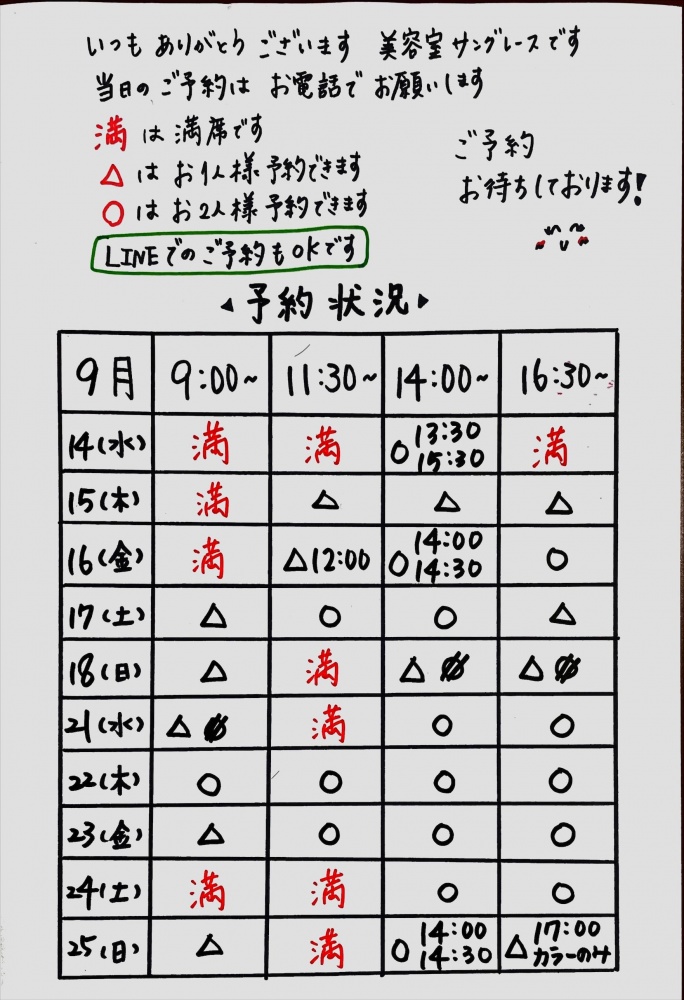 いつも ありがとう ございます 美容室 サングレースです
当日の ご予約は お電話で お願いします
満 は 満席です
△ は お1人様 予約できます
○ は お2人様 予約できます
LINEでの ご予約も OKです
ご予約
お待ちしております!
◀ 予約 状況 ▶
9月 9:00~ 11:30~ 14:00~ 16:30~
14(水) 満 満 ○ 13:30 15:30 満
15(木) 満 △ △ △
16(金) 満 △12:00 ○ 14:00 14:30 ○
17(土) △ ○ ○ △
18(日) △ 満 △ △
21(水) △ 満 ○ ○
22(木) ○ ○ ○ ○
23(金) △ ○ ○ ○
24(土) 満 満 ○ ○
25(日) △ 満 ○ 14:00 14:30 △ 17:00 カラーのみ